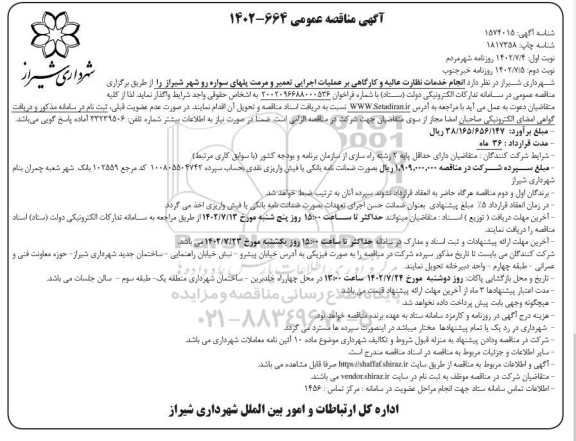 آگهی مناقصه عمومی ۶۶۴-۱۴۰۲
شهرداری شیراز
شناسه آگهی: ۱۵۷۴۰۱۵
شناسه چاپ: ۱۸۱۷۳۵۸
نوبت اول: ۱۴۰۲/۷/۴ روزنامه شهرمردم
نوبت دوم: ۱۴۰۲/۷/۵ روزنامه خبرجنوب
شهرداری شیراز در نظر دارد انجام خدمات نظارت عالیه و کارگاهی بر عملیات اجرایی تعمیر و مرمت پلهای سواره رو شهر شیراز را از طریق برگزاری
مناقصه عمومی در سامانه تدارکات الکترونیکی دولت (ستاد) با شماره فراخوان ۲۰۰۲۰۹۶۶۸۸۰۰۰۵۳۶ به اشخاص حقوقی واجد شرایط واگذار نماید. لذا از کلیه
متقاضیان دعوت به عمل می آید با مراجعه به آدرس WWW.Setadiran.ir نسبت به دریافت اسناد مناقصه و تحویل آن اقدام نمایند. در صورت عدم عضویت قبلی، ثبت نام در سامانه مذکور و دریافت
گواهی امضای الکترونیکی صاحبان امضا مجاز از سوی متقاضیان جهت شرکت در مناقصه الزامی است. ضمناً در صورت نیاز به اطلاعات بیشتر شماره تلفن: ۳۲۲۳۹۵۰۶ آماده پاسخ گویی می‌باشد.
- مبلغ برآورد: ۳۸/۱۶۵/۶۵۶/۱۴۷ ریال
- مدت قرارداد: ۳۶ ماه
- شرایط شرکت کنندگان : متقاضیان دارای حداقل پایه ۲ رشته راه سازی از سازمان برنامه و بودجه کشور (با سوابق کاری مرتبط)
- مبلغ سپرده شرکت در مناقصه ۱,۹۰۹,۰۰۰,۰۰۰ ریال بصورت ضمانت نامه بانکی یا فیش واریزی نقدی بحساب سپرده ۱۰۰۸۰۵۵۰۴۷۴۲ کد مرجع ۱۰۲۵۵۹ بانک شهر شعبه چمران بنام
شهرداری شیراز
- برندگان اول و دوم مناقصه هرگاه حاضر به انعقاد قرارداد نشوند سپرده آنان به ترتیب ضبط خواهد شد.
- در زمان انعقاد قرارداد ۵٪ مبلغ پیشنهادی بعنوان ضمانت حسن اجرای تعهدات بصورت ضمانت نامه بانکی یا فیش واریزی اخذ می گردد.
- آخرین مهلت دریافت (توزیع ) اسناد : متقاضیان میتوانند حداکثر تا ساعت ۱۵:۰۰ روز پنج شنبه مورخ ۱۴۰۲/۷/۱۳ از طریق مراجعه به سامانه تدارکات الکترونیکی دولت (ستاد) اسناد
مناقصه را دریافت نمایند.
- آخرین مهلت ارائه پیشنهادات و ثبت اسناد و مدارک در سامانه حداکثر تا ساعت ۱۵:۰۰ روز یکشنبه مورخ ۱۴۰۲/۷/۲۳ می باشد.
شرکت کنندگان می بایست تا تاریخ مذکور سپرده شرکت در مناقصه را به صورت فیزیکی به آدرس خیابان پیشرو - نبش خیابان راهنمایی - ساختمان جدید شهرداری شیراز- حوزه معاونت فنی و
عمرانی - طبقه چهارم - واحد دبیرخانه تحویل نمایند.
- تاریخ و محل بازگشایی پاکات: روز دوشنبه مورخ ۱۴۰۲/۷/۲۴ ساعت ۱۳:۰۰ در محل چهارراه خلدبرین - ساختمان شهرداری منطقه یک- طبقه سوم - سالن جلسات می باشد.
- مدت اعتبار پیشنهادها ۳ ماه از آخرین مهلت ارائه پیشنهاد قیمت می باشد.
- هیچگونه وجهی بابت پیش پرداخت داده نخواهد شد.
- هزینه درج آگهی در روزنامه و کارمزد سامانه ستاد به عهده برنده مناقصه خواهد بود.
- شهرداری در رد یک یا تمام پیشنهادها مختار میباشد در اینصورت سپرده ها مسترد می گردد.
- شرکت در مناقصه ودادن پیشنهاد به منزله قبول شروط و تکالیف شهرداری موضوع ماده ۱۰ آئین نامه معاملات شهرداری می باشد.
- سایر اطلاعات و جزئیات مربوط به مناقصه در اسناد مناقصه مندرج است.
- آگهی و اطلاعات مربوط به مناقصه از طریق سایت https://shaffaf.shiraz.ir صرفا قابل مشاهده می باشد.
- متقاضیان شرکت در مناقصه موظف به ثبت نام در سایت vendor.shiraz.ir می باشند.
- اطلاعات تماس سامانه ستاد جهت انجام مراحل عضویت در سامانه : مرکز تماس : ۱۴۵۶
اداره کل ارتباطات و امور بین الملل شهرداری شیراز
ParsNamadData
پایگاه اطلاع رسانی مناقصه و مزایده
۰۲۱-۸۸۳۴۹۶۷۰-۵